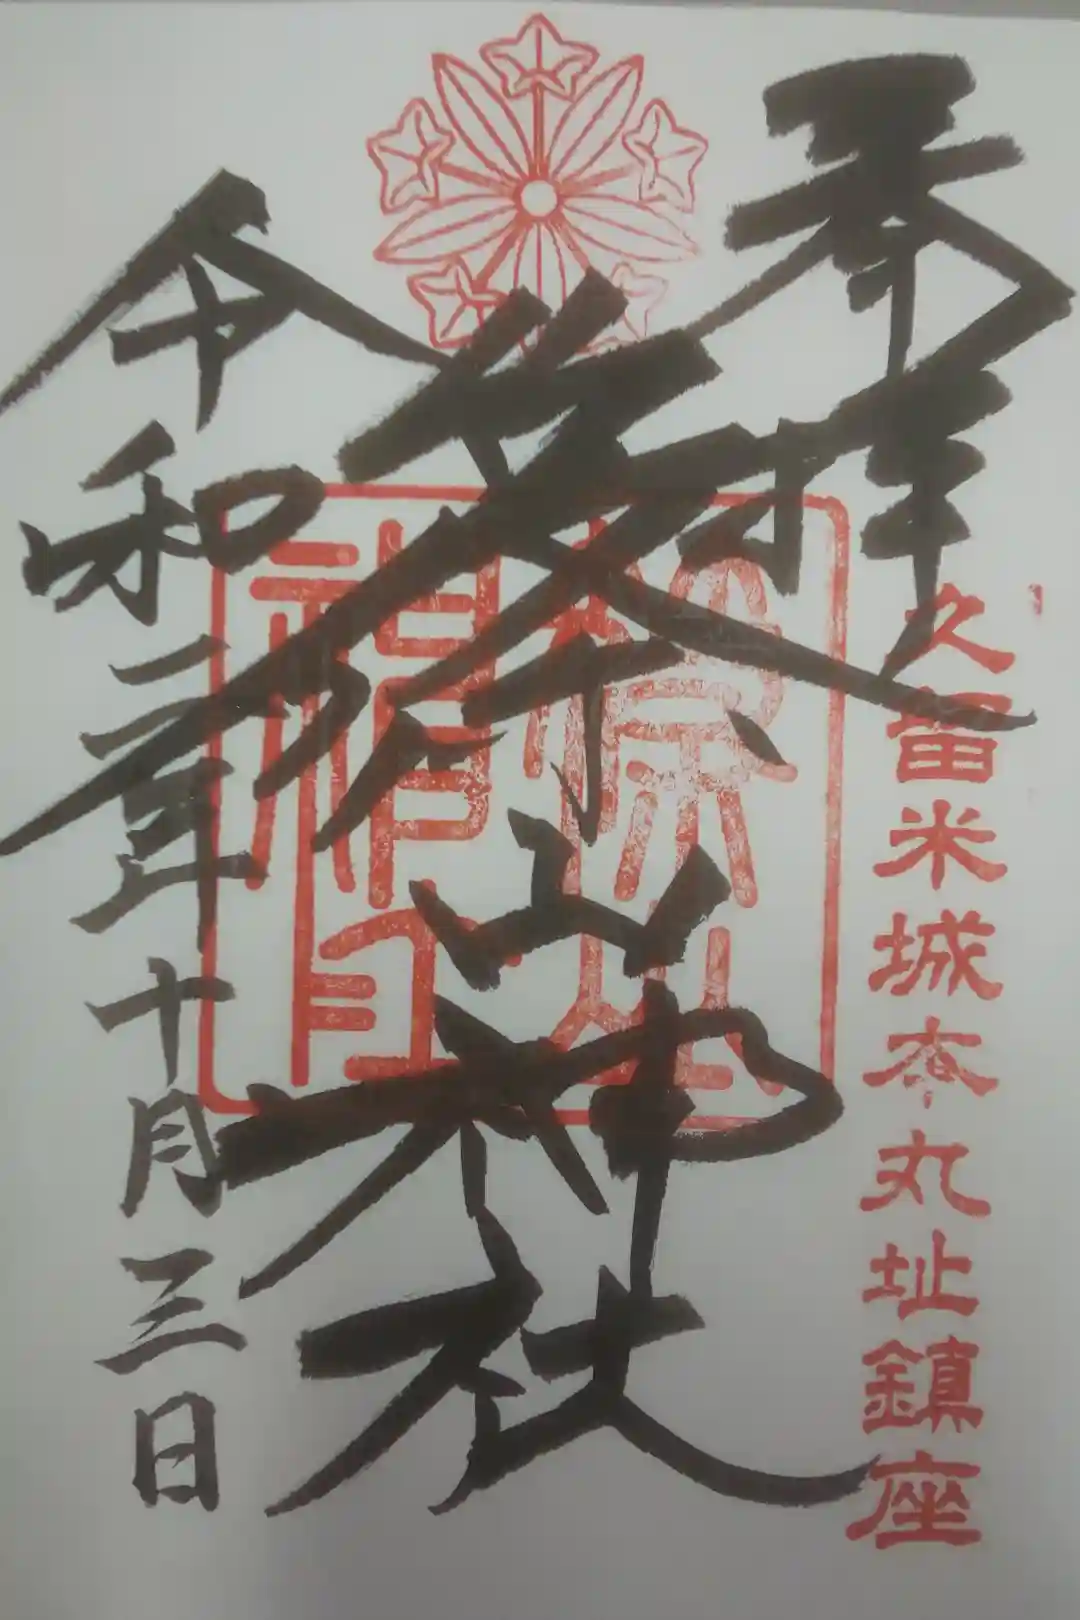 奉拝
久留米城本丸址鎮座
篠山神社
令和二年十月三日